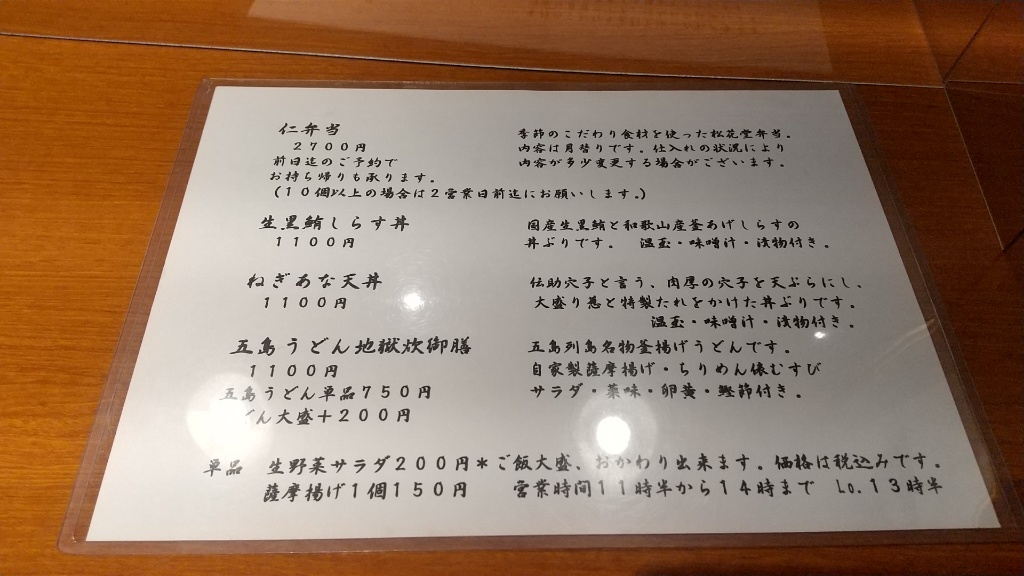 仁弁当
2700円
前日迄のご予約で
お持ち帰りも承ります。
(10個以上の場合は2営業日前迄にお願いします。)
季節のこだわり食材を使った松花堂弁当。
内容は月替りです。仕入れの状況により
内容が多少変更する場合がございます。
生黒鮪しらす丼
1100円
国産生黒鮪と和歌山産釜あげしらすの
丼ぶりです。 温玉・味噌汁・漬物付き。
ねぎあな天丼
1100円
伝助穴子と言う、肉厚の穴子を天ぷらにし、
大盛り葱と特製たれをかけた丼ぶりです。
温玉・味噌汁・漬物付き。
五島うどん地獄炊御膳
1100円
五島うどん単品750円
どん大盛+200円
五島列島名物釜揚げうどんです。
自家製薩摩揚げ・ちりめん俵むすび
サラダ・薬味・卵黄・鰹節付き。
単品 生野菜サラダ200円*ご飯大盛、おかわり出来ます。価格は税込みです。
薩摩揚げ1個150円 営業時間11時半から14時まで Lo.13時半